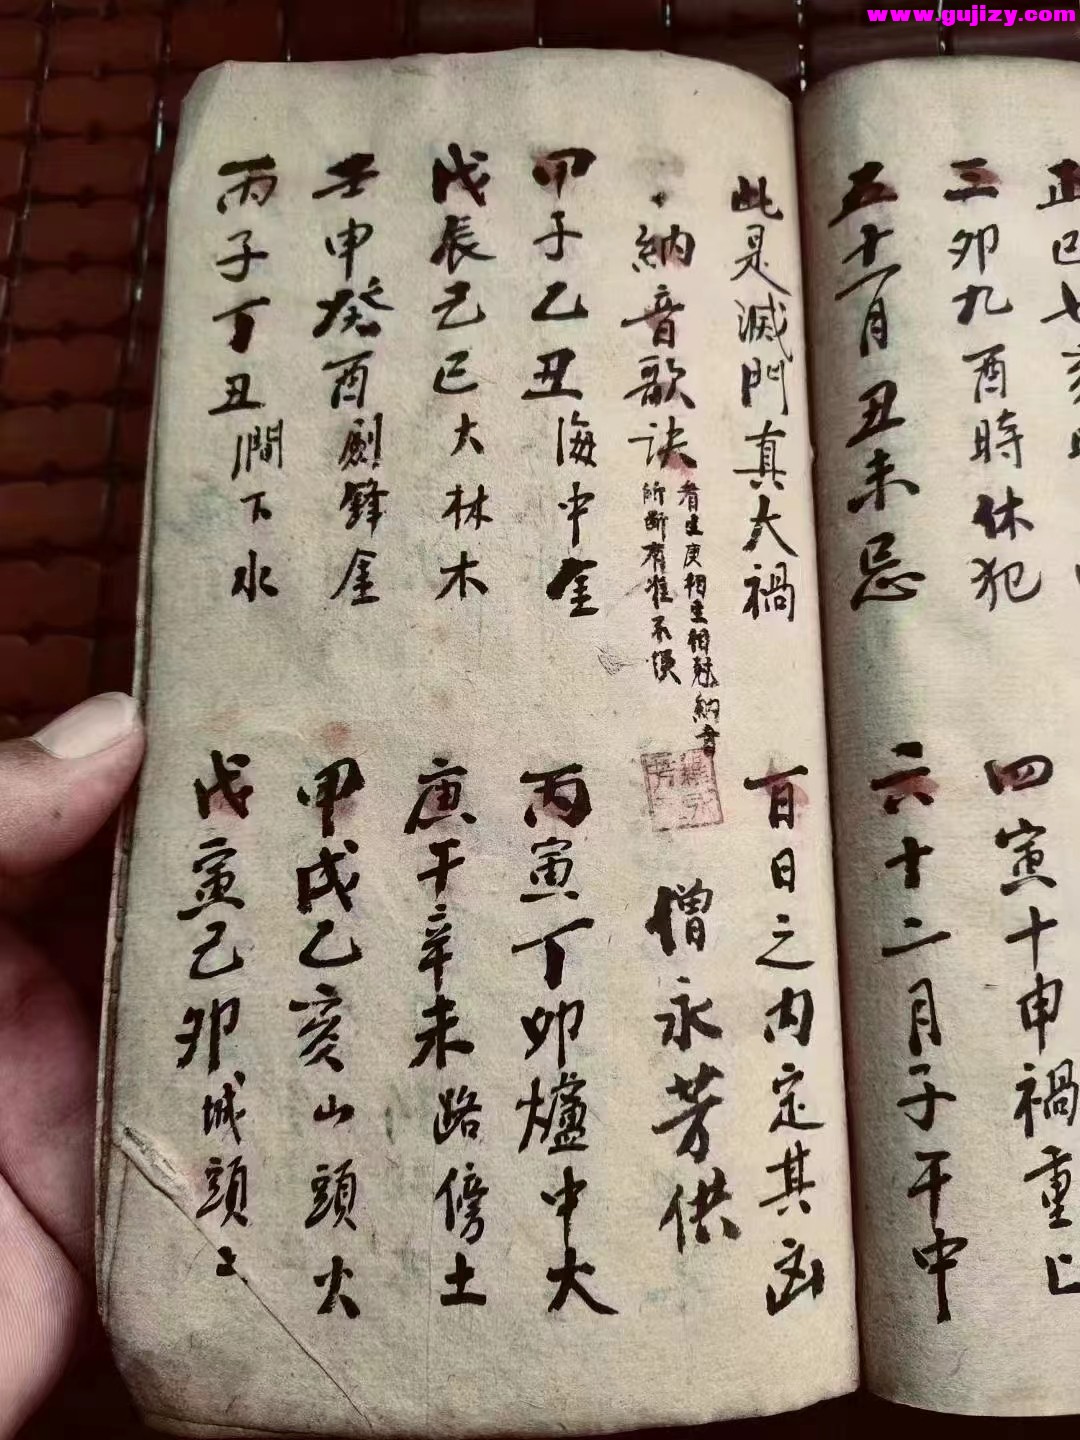 www.gujizy.com
正巳七亥
三卯九酉時休犯
四寅十申禍重
五十一月丑未忌
六十二月子午中
此是滅門真大禍
百日之内定其凶
納音歌訣
看生庚相生相尅納音
所断有准不悞
僧永芳供
甲子乙丑海中金
丙寅丁卯爐中大
戊辰己巳大林木
庚午辛未路傍土
壬申癸酉劍鋒金
甲戌乙亥山頭火
丙子丁丑澗下水
戊寅己卯城頭土